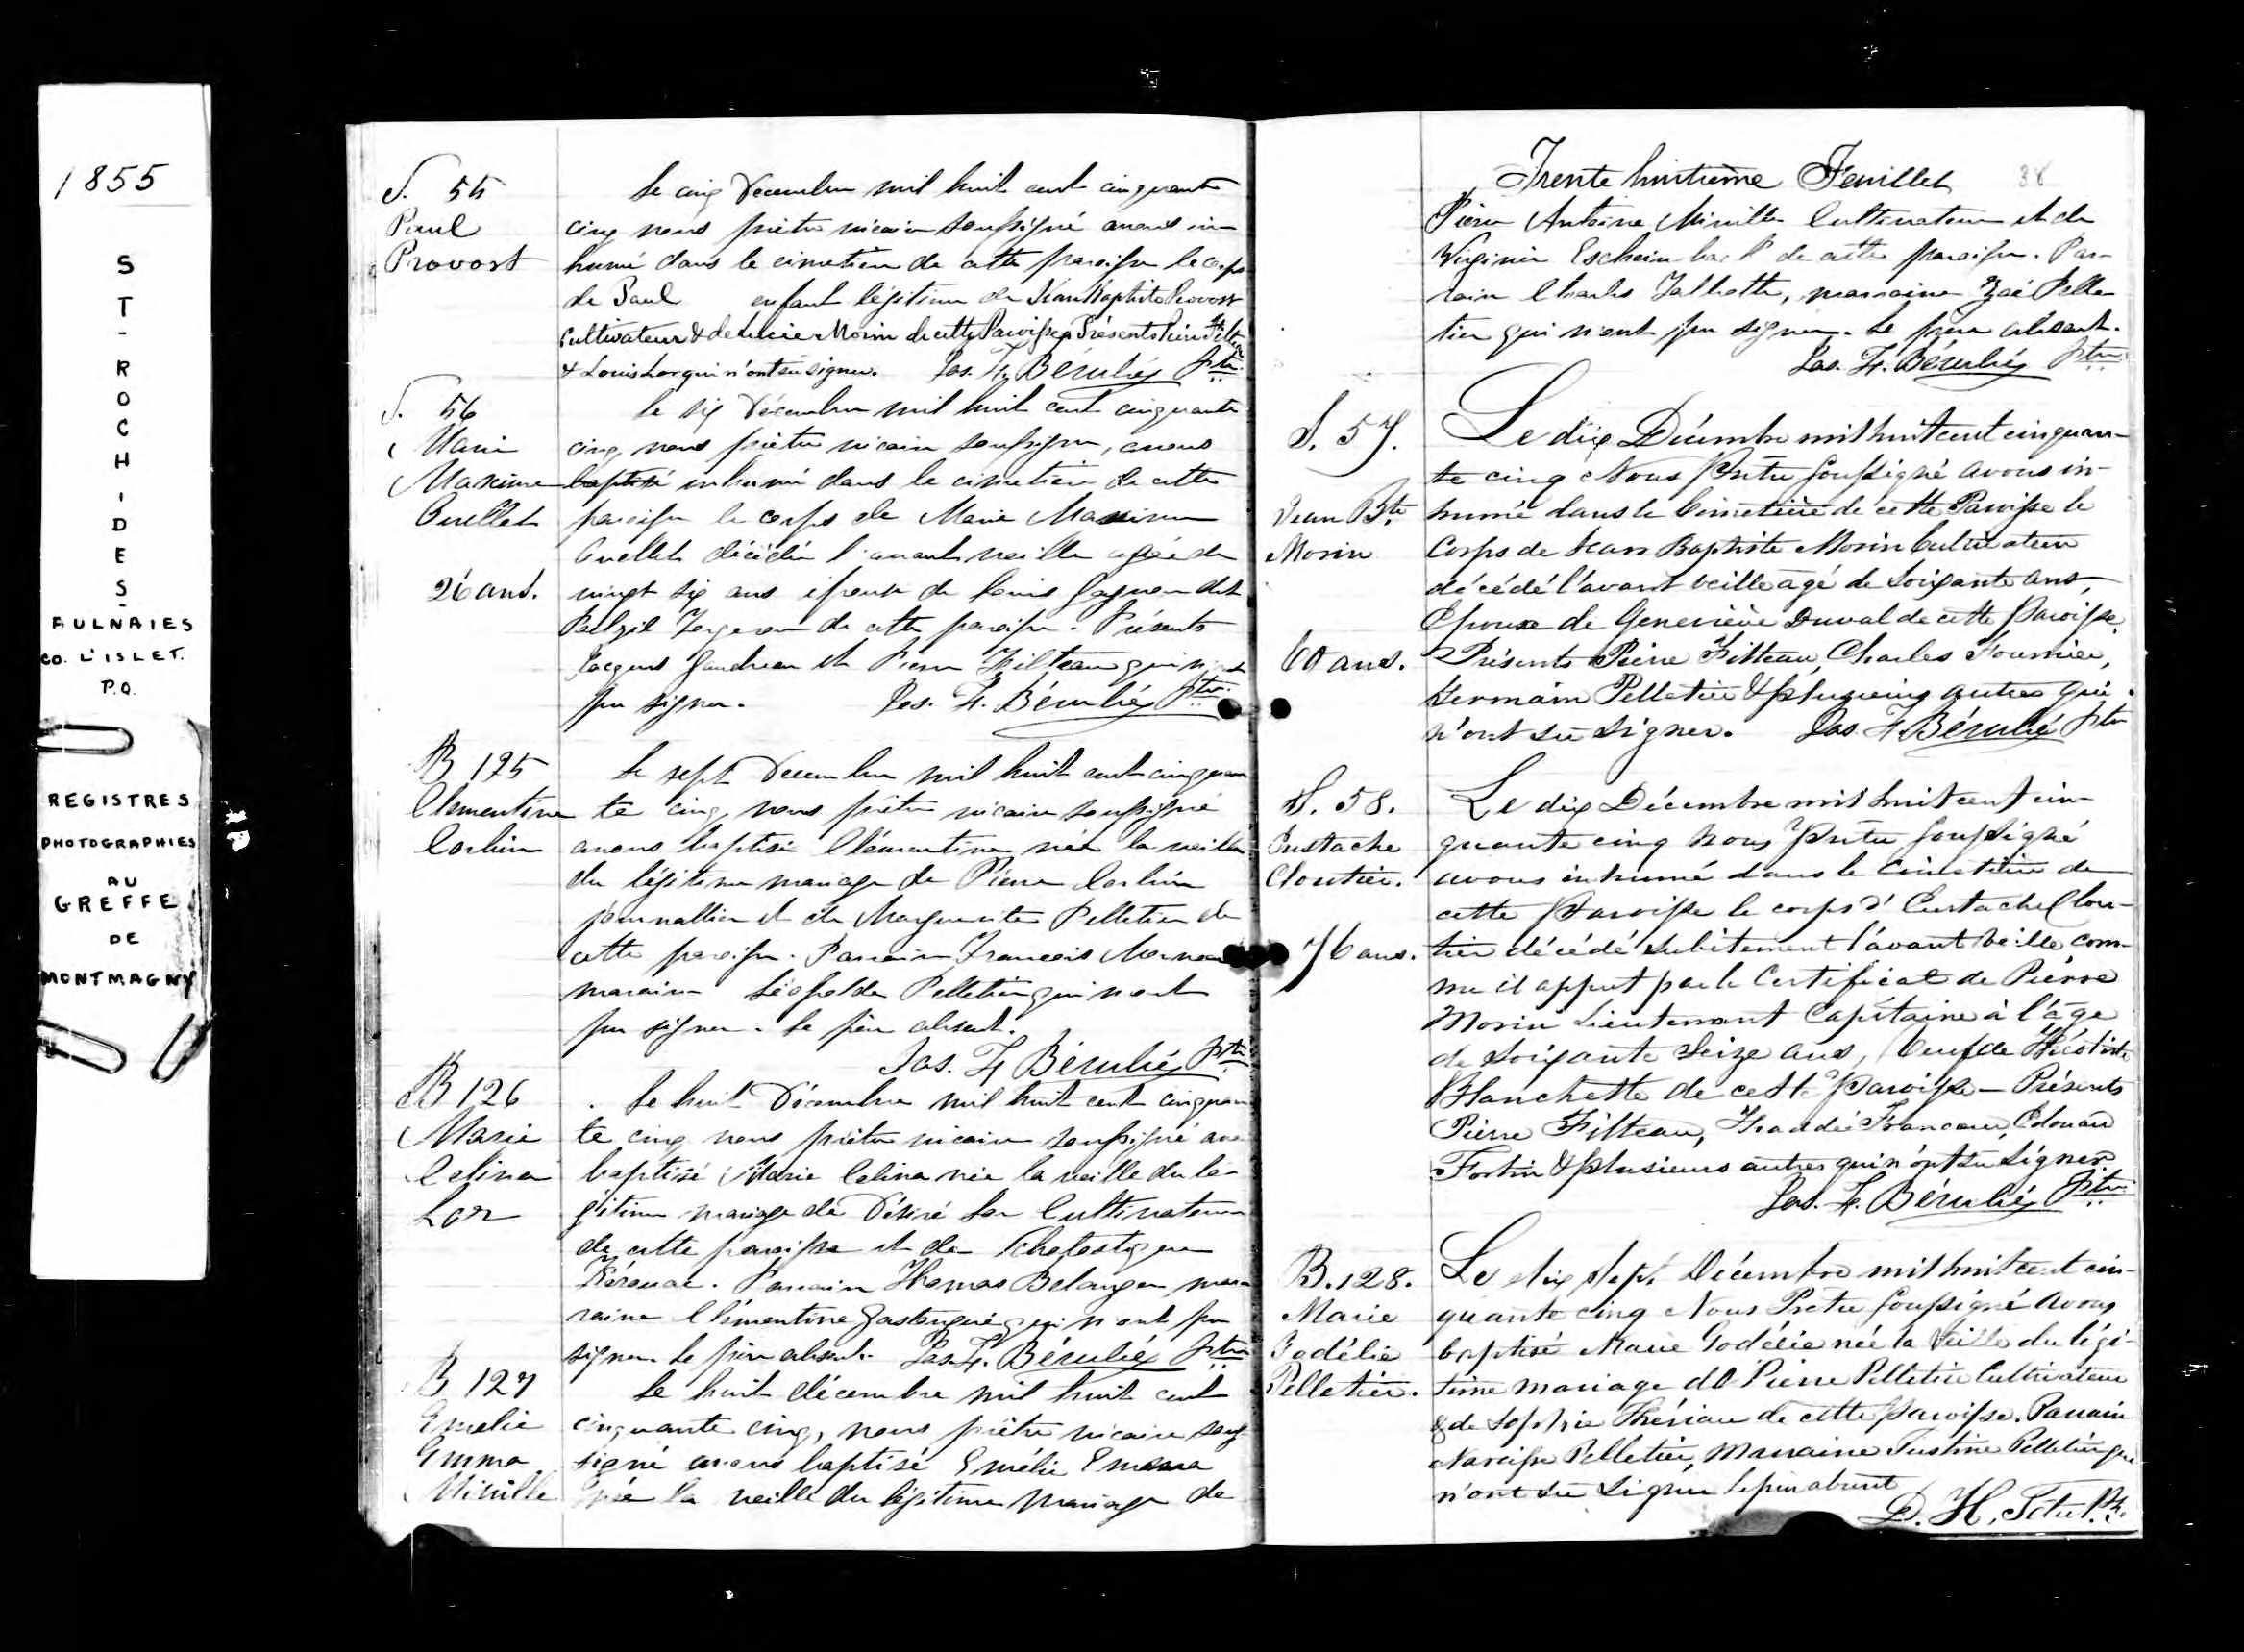 1855
ST-ROCH-DES-
AULNAIES
CO. L'ISLET.
P.Q.
REGISTRES
PHOTOGRAPHIES
AU
GREFFE
DE
MONTMAGNY
S. 55
Paul
Provost
Le cinq Decembre mil huit cent cinquante
cinq nous prêtre vicaire soussigné avons in-
humé dans le cimetière de cette paroisse le corps
de Paul enfant légitime de Jean Baptiste Provost
Cultivateur & de Lucie Morin de cette Paroisse Présents Pierre Filteau
& Louis Lor qui n'ont su signer. Jos. H. Bérubé Ptre
S. 56
Marie
Maxime
Ouellet
26 ans.
Le six Décembre mil huit cent cinquante
cinq nous prêtre vicaire soussigné, avons
baptisé inhumé dans le cimetière de cette
paroisse le corps de Marie Maxime
Ouellet décédée l'avant veille agée de
vingt six ans épouse de Louis Gagnon dit
Belzil Forgeron de cette paroisse. Présents
Jacques Gaudreau et Pierre Filteau qui n'ont
pu signer. Jos. H. Bérubé Ptre
B 125
Clementine
Corbin
Le sept Decembre mil huit cent cinquan
te cinq, nous prêtre vicaire soussigné
avons baptisé Clémentine née la veille
du légitime mariage de Pierre Corbin
journallier et de Marguerite Pelletier de
cette paroisse. Parrain François
maraine Léopolde Pelletier qui n'ont
pu signer. Le père absent.
Jos. H Bérubé Ptre
B 126
Marie
Celina
Lor
Le huit Décembre mil huit cent cinquan
te cinq nous prêtre vicaire soussigné avo
baptisé Marie Celina née la veille du lé-
gitime mariage de Désiré Lor Cultivateur
de cette paroisse et de
Kérouac. Parrain Thomas Belanger, mar
raine Clémentine Gastongué qui n'ont pu
signer. Le père absent. Jos. H. Bérubé Ptre
B 127
Emelie
Emma
Miville
Le huit décembre mil huit cent
cinquante cinq, nous prêtre vicaire sous
signé avons baptisé Emélie Emma
née la veille du légitime mariage de
Trente huitième Feuillet 38
Pierre Antoine Miville Cultivateur et de
Virginie Escheinbach de cette paroisse. Par-
rain Charles Talbotte, marraine Zoé Pelle
tier qui n'ont pu signer. Le père absent.
Jos. H. Bérubé Ptre
S. 57.
Jean Bte
Morin
60 ans.
Le dix Décembre mil huit cent cinquan-
te cinq Nous Prêtre soussigné avons in-
humé dans le Cimetière de cette Paroisse le
Corps de Jean Baptiste Morin Cultivateur
décédé l'avant veille agé de Soixante ans,
Epoux de Geneviève Duval de cette Paroisse.
Présents Pierre Filteau, Charles Fournier,
Germain Pelletier & plusieurs autres qui
n'ont su signer. Jos. H. Bérubé Ptre
S. 58.
Eustache
Cloutier.
76 ans.
Le dix Décembre mil huit cent cin-
quante cinq nous Prêtre soussigné
avons inhumé dans le Cimetière de
cette Paroisse le corps d'Eustache Clou-
tier décédé subitement l'avant veille com-
me il appert par le Certificat de Pierre
Morin Lieutenant Capitaine à l'âge
de soixante Seize ans, Veuf de Théotiste
Blanchette de cette Paroisse – Présents
Pierre Filteau, Francoeur, Edouard
Fortin & plusieurs autres qui n'ont su signer.
Jos. H. Bérubé Ptre
B. 128.
Marie
Godélie
Pelletier.
Le dix sept Décembre mil huit cent cin-
quante cinq Nous Prêtre soussigné avons
baptisé Marie Godélie née la veille du légi-
time mariage de Pierre Pelletier Cultivateur
& de Sophie Thériau de cette paroisse. Parrain
Narcisse Pelletier, Marraine Justine Pelletier qui
n'ont su signer le père absent
D. H. Tétu Ptr.